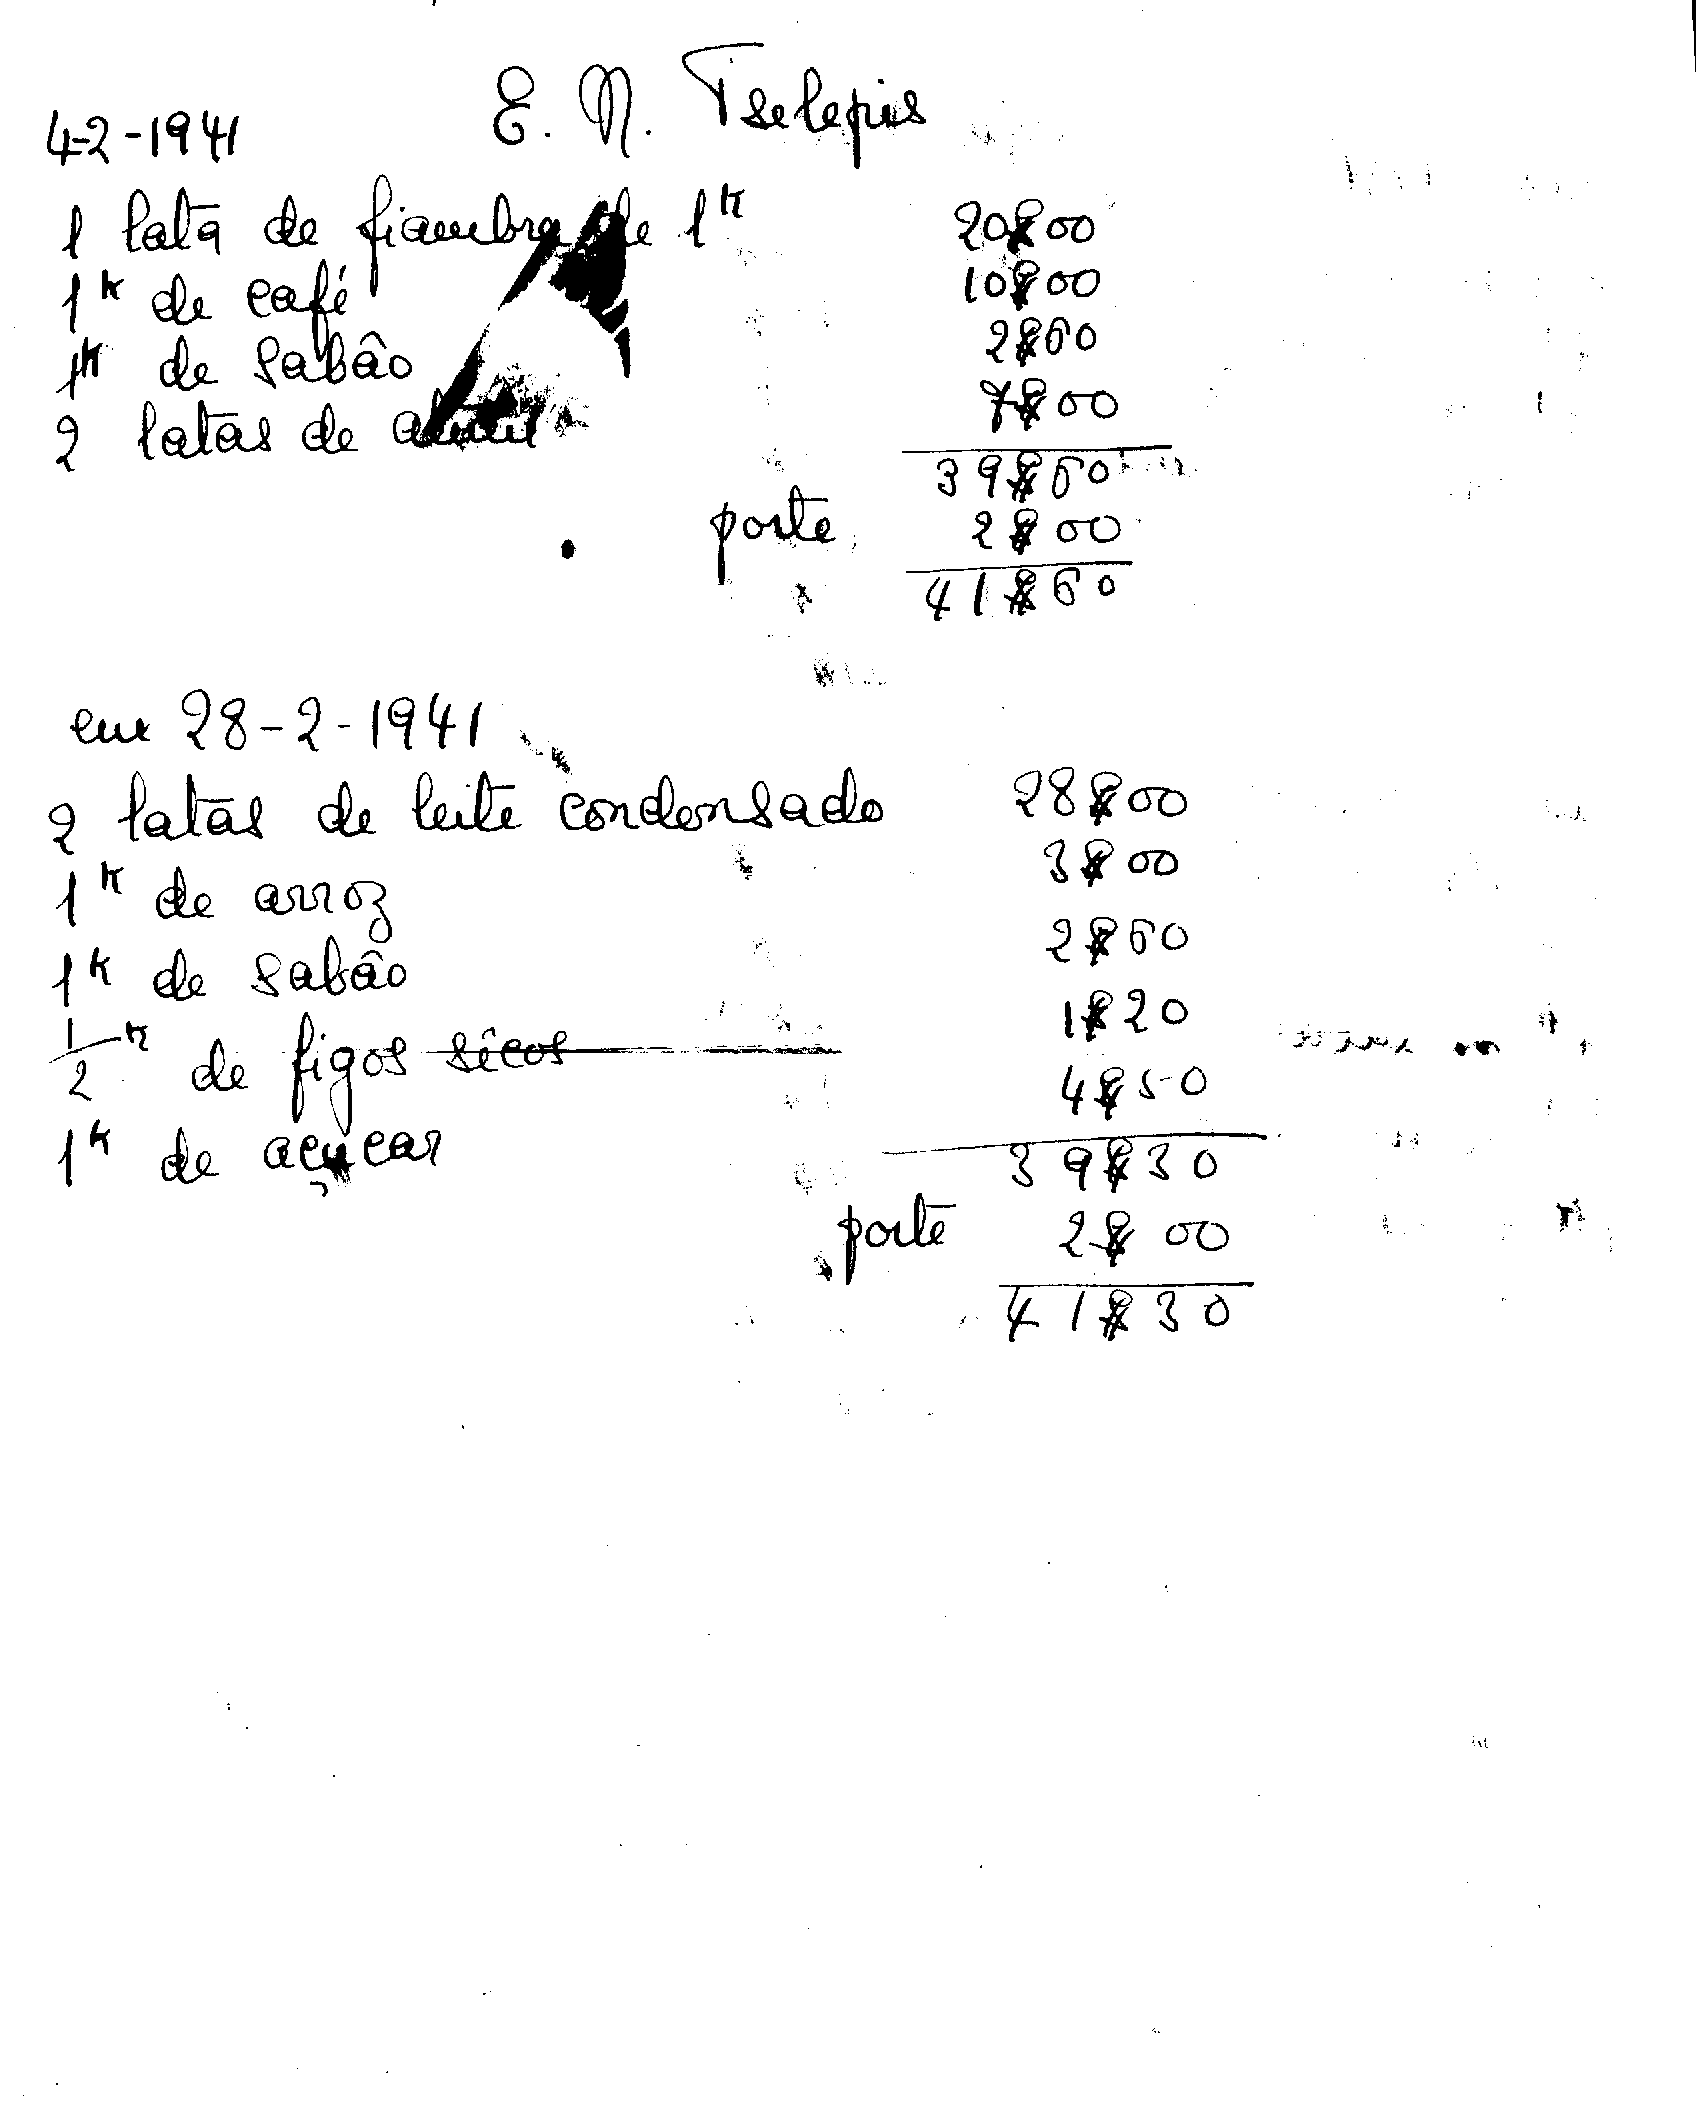 E. N. Tselepis
4-2-1941
1 lata de fiambre de 1k 20$00
1k de café 10$00
1k de sabão 2$60
2 latas de atum 7$00
39$60
porte 2$00
41$60
em 28-2-1941
2 latas de leite condensado 28$00
1k de arroz 3$00
1k de sabão 2$60
1/2k de figos sêcos 1$20
1k de açucar 4$50
39$30
porte 2$00
41$30